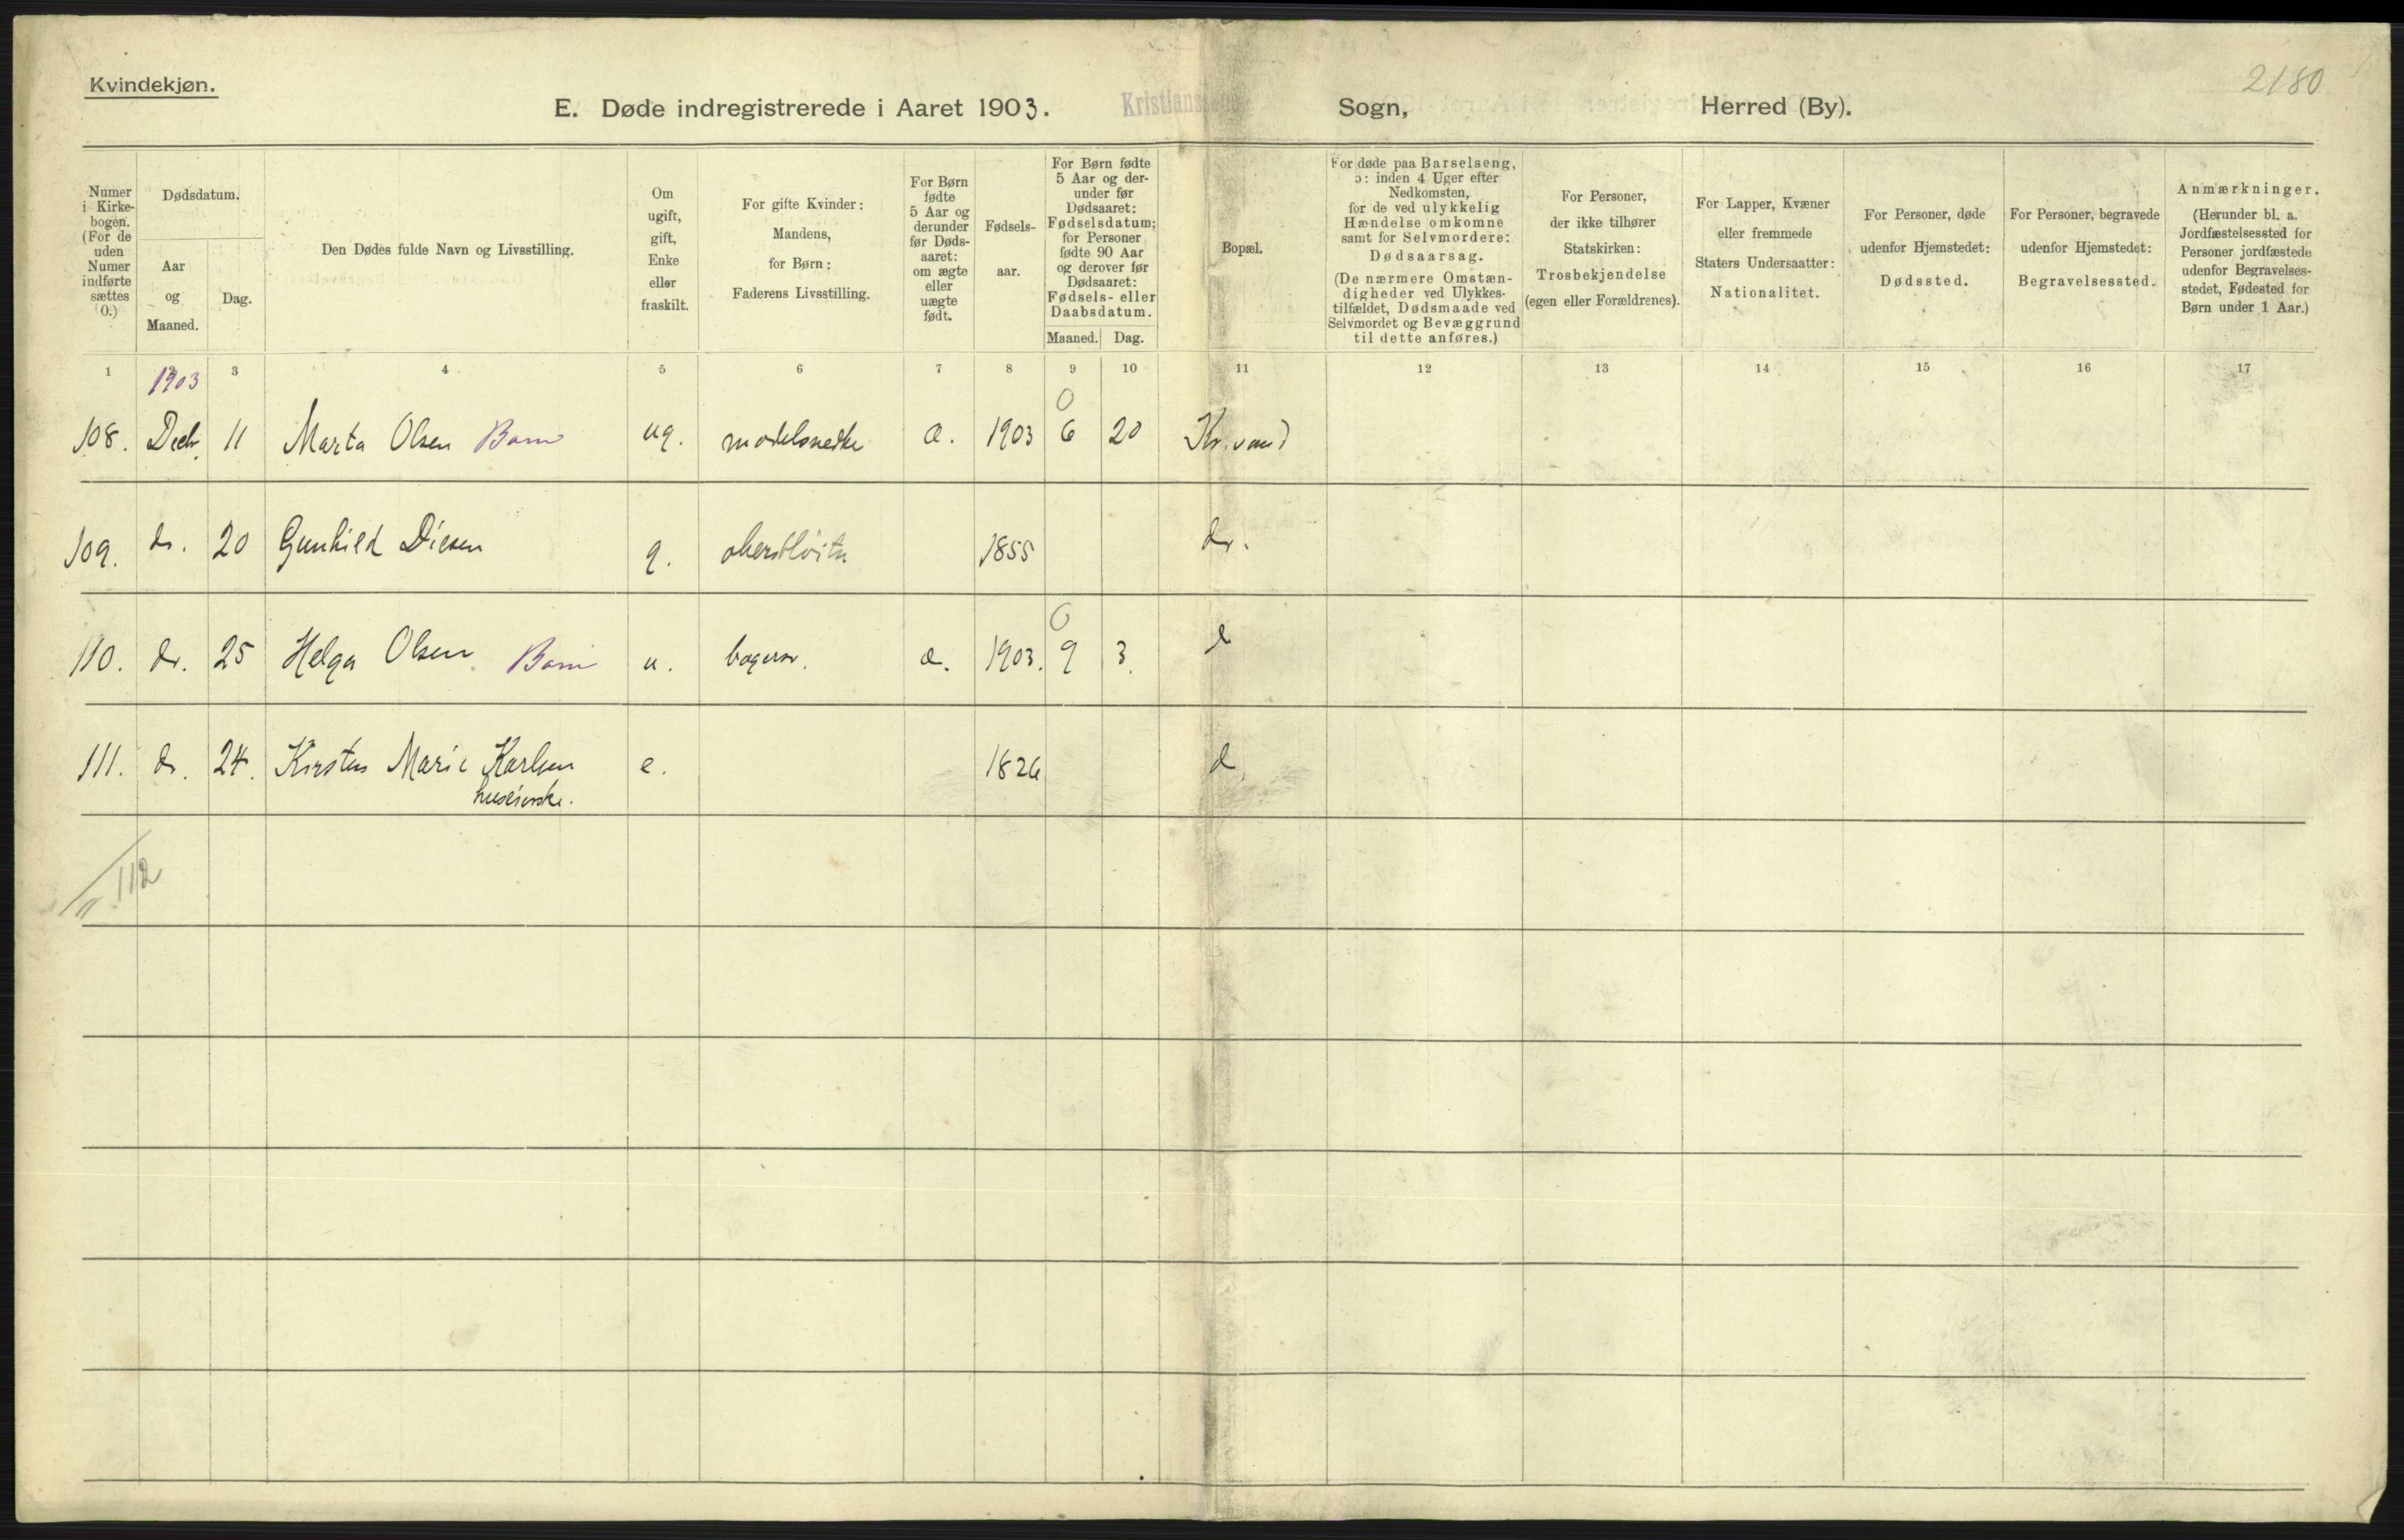 Kvindekjøn.
2180
E. Døde indregistrerede i Aaret 1903. Kristianssand Sogn, Herred (By).
Numer
i Kirke-
bogen.
(For de
uden
Numer
indførte
sættes
0.)
Dødsdatum.
Aar
og
Maaned.
Dag.
Den Dødes fulde Navn og Livsstilling.
Om
ugift,
gift,
Enke
eller
fraskilt.
For gifte Kvinder:
Mandens,
for Børn:
Faderens Livsstilling.
For Børn
fødte
5 Aar og
derunder
før Døds-
aaret:
om ægte
eller
uægte
født.
Fødsels-
aar.
For Børn fødte
5 Aar og der-
under før
Dødsaaret:
Fødselsdatum;
for Personer
fødte 90 Aar
og derover før
Dødsaaret:
Fødsels- eller
Daabsdatum.
Maaned. Dag.
Bopæl.
For døde paa Barselseng,
ɔ: inden 4 Uger efter
Nedkomsten,
for de ved ulykkelig
Hændelse omkomne
samt for Selvmordere:
Dødsaarsag.
(De nærmere Omstæn-
digheder ved Ulykkes-
tilfældet, Dødsmaade ved
Selvmordet og Bevæggrund
til dette anføres.)
For Personer,
der ikke tilhører
Statskirken:
Trosbekjendelse
(egen eller Forældrenes).
For Lapper, Kvæner
eller fremmede
Staters Undersaatter:
Nationalitet.
For Personer, døde
udenfor Hjemstedet:
Dødssted.
For Personer, begravede
udenfor Hjemstedet:
Begravelsessted.
Anmærkninger.
(Herunder bl. a.
Jordfæstelsessted for
Personer jordfæstede
udenfor Begravelses-
stedet, Fødested for
Børn under 1 Aar.)
1 2 3 4 5 6 7 8 9 10 11 12 13 14 15 16 17
1903
0
108. Decbr. 11 Marta Olsen Barn ug. modelsnedke æ. 1903 6 20 Kr.sand
109. do. 20 Gunhild Diesen g. oberstløitn 1855 do.
0
110. do. 25 Helga Olsen Barn u. bogersv. æ. 1903. 9 3. d
111. do. 24. Kirsten Marie Karlsen e. 1826 d
huseierske.
112